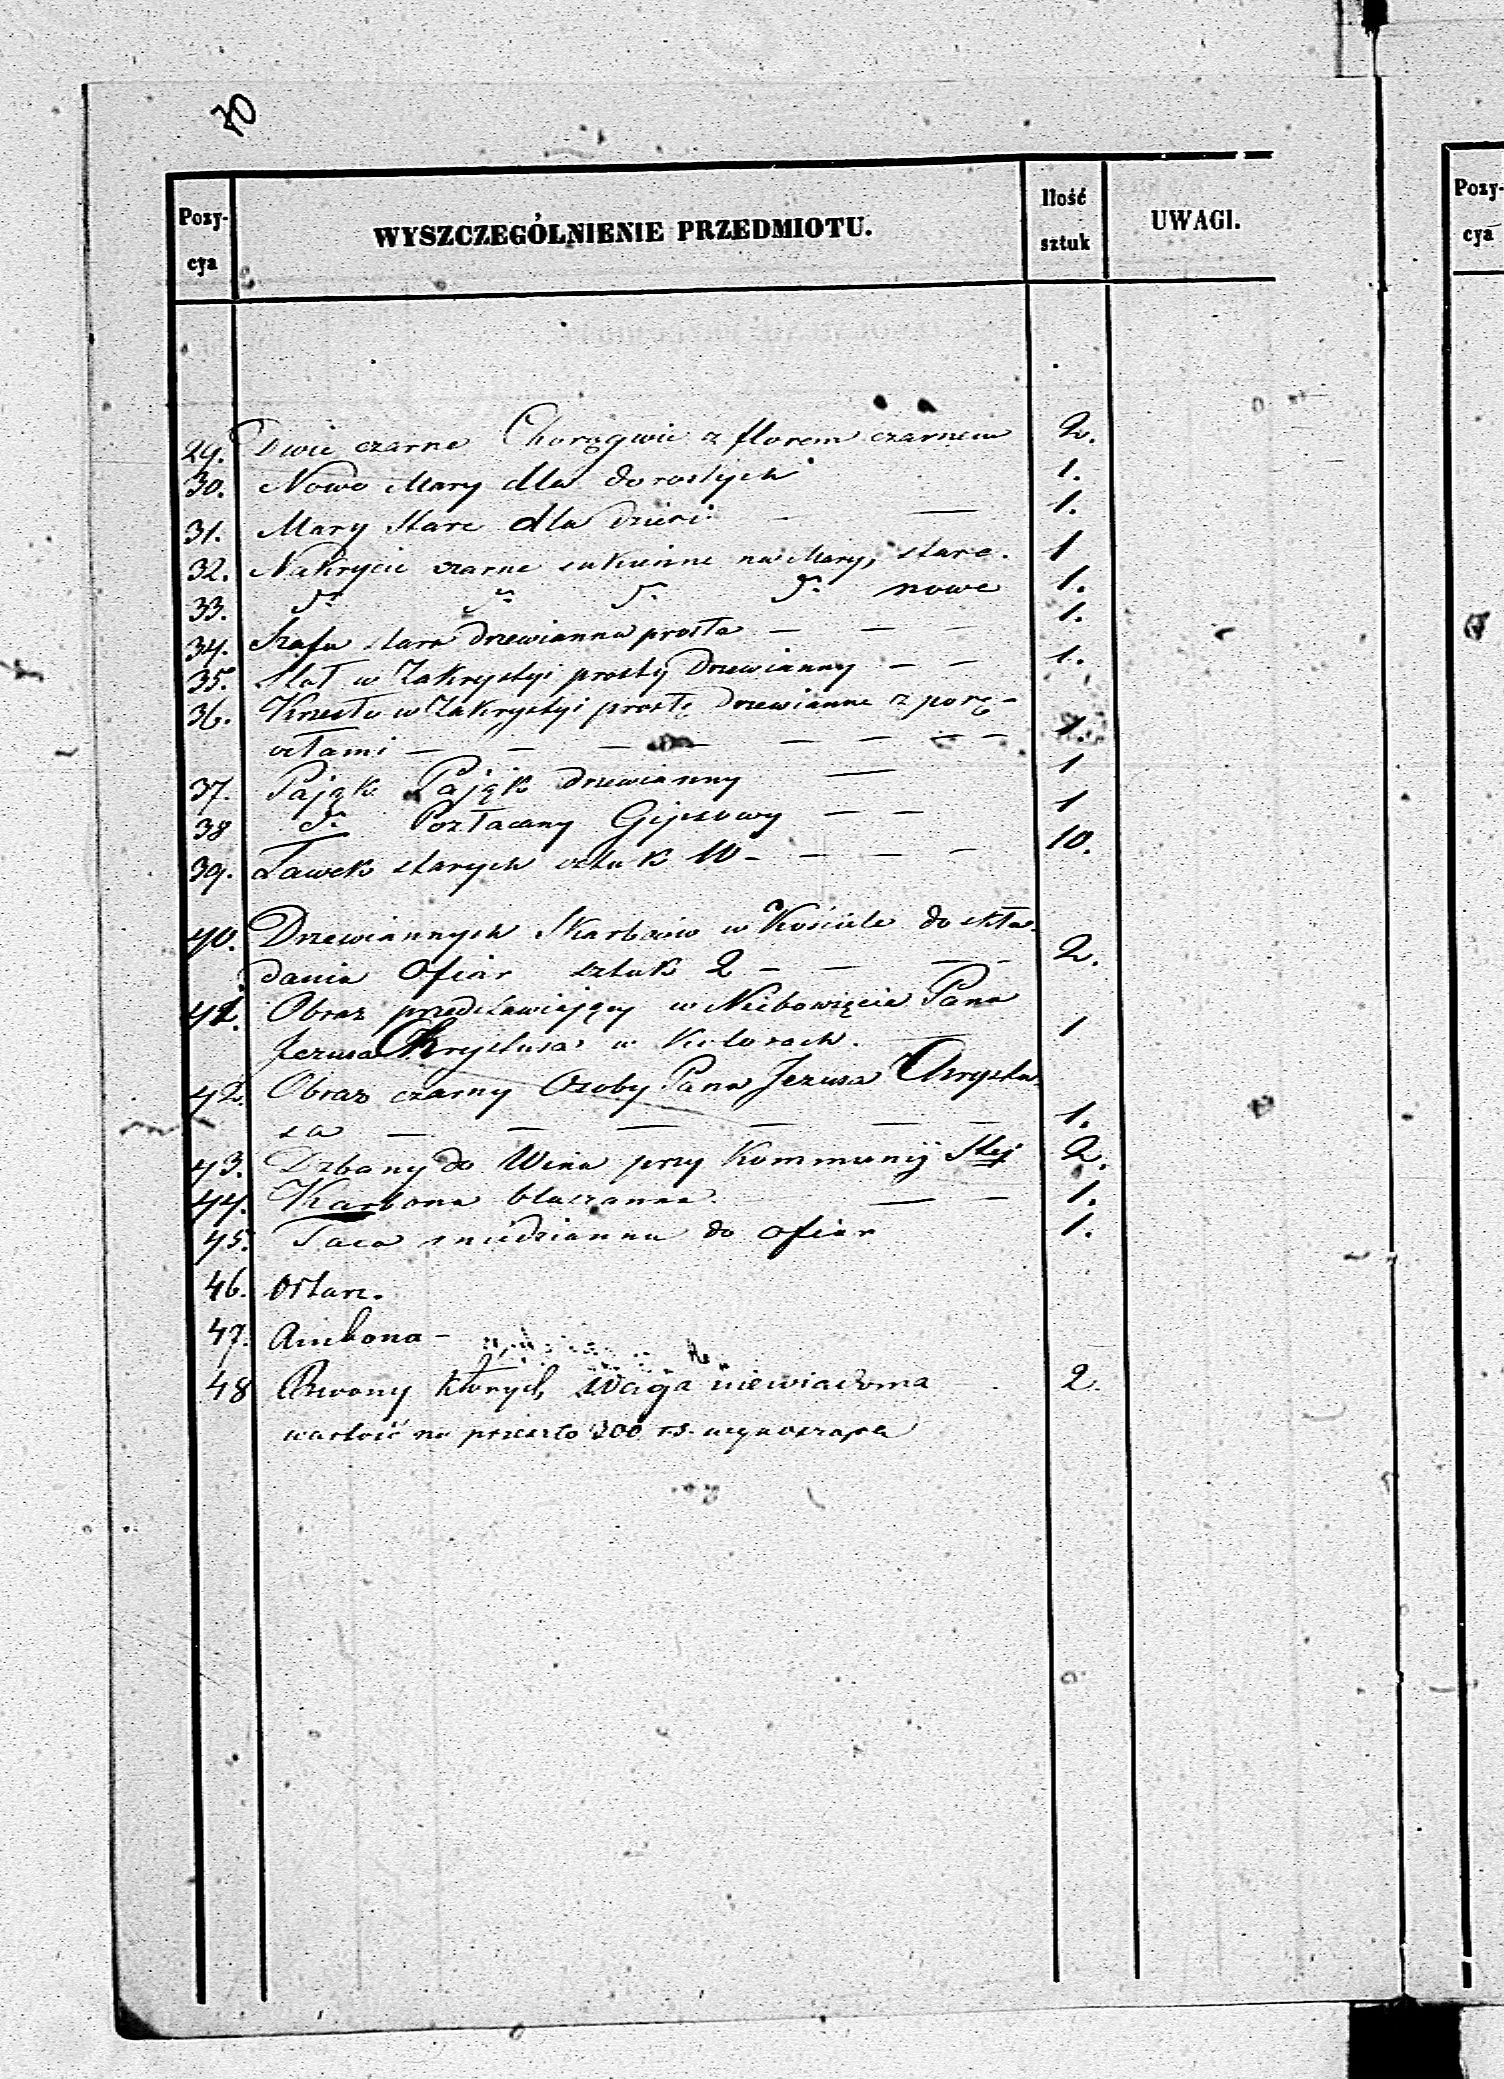 70
Pozy-
cya
WYSZCZEGÓLNIENIE PRZEDMIOTU.
Ilość
sztuk
UWAGI.
29. Dwie czarne Chorągwie z florem czarnem 2.
30. Nowe Mary dla dorosłych 1.
31. Mary stare dla dzieci — — 1.
32. Nakrycie czarne sukienne na Mary, stare. 1
33. dº dº dº dº nowe 1.
34. Szafa stara drzewianna prosta — — — 1.
35. Stół w Zakrystyi prosty Drzewianny — — 1.
36. Krzesło w Zakrystyi proste Drzewianne z porę-
czami — — — — — — — — 1.
37. Pająk Pająk drzewianny — 1
38 dº Pozłacany Gipsowy — — 1
39. Ławek starych sztuk 10 — — — — 10.
40. Drzewiannych Skarbon w Kościele do skła-
dania Ofiar sztuk 2 — — — — 2.
41. Obraz przedstawiający w Niebowzięcie Pana
Jezusa Chrystusa w Kolorach. — 1
42. Obraz czarny Osoby Pana Jezusa Chrystu-
sa — — — — — — 1.
43. Dzbany do Wina przy Kommunij Stej 2.
44. Karbona blaszanna. — — — 1.
45. Taca miedzianna do ofiar 1.
46. Ołtarz.
47. Ambona —
48 Dzwony których Waga niewiadoma 2.
wartość na przeszło 300 rs. wynosząca
Pozy-
cya